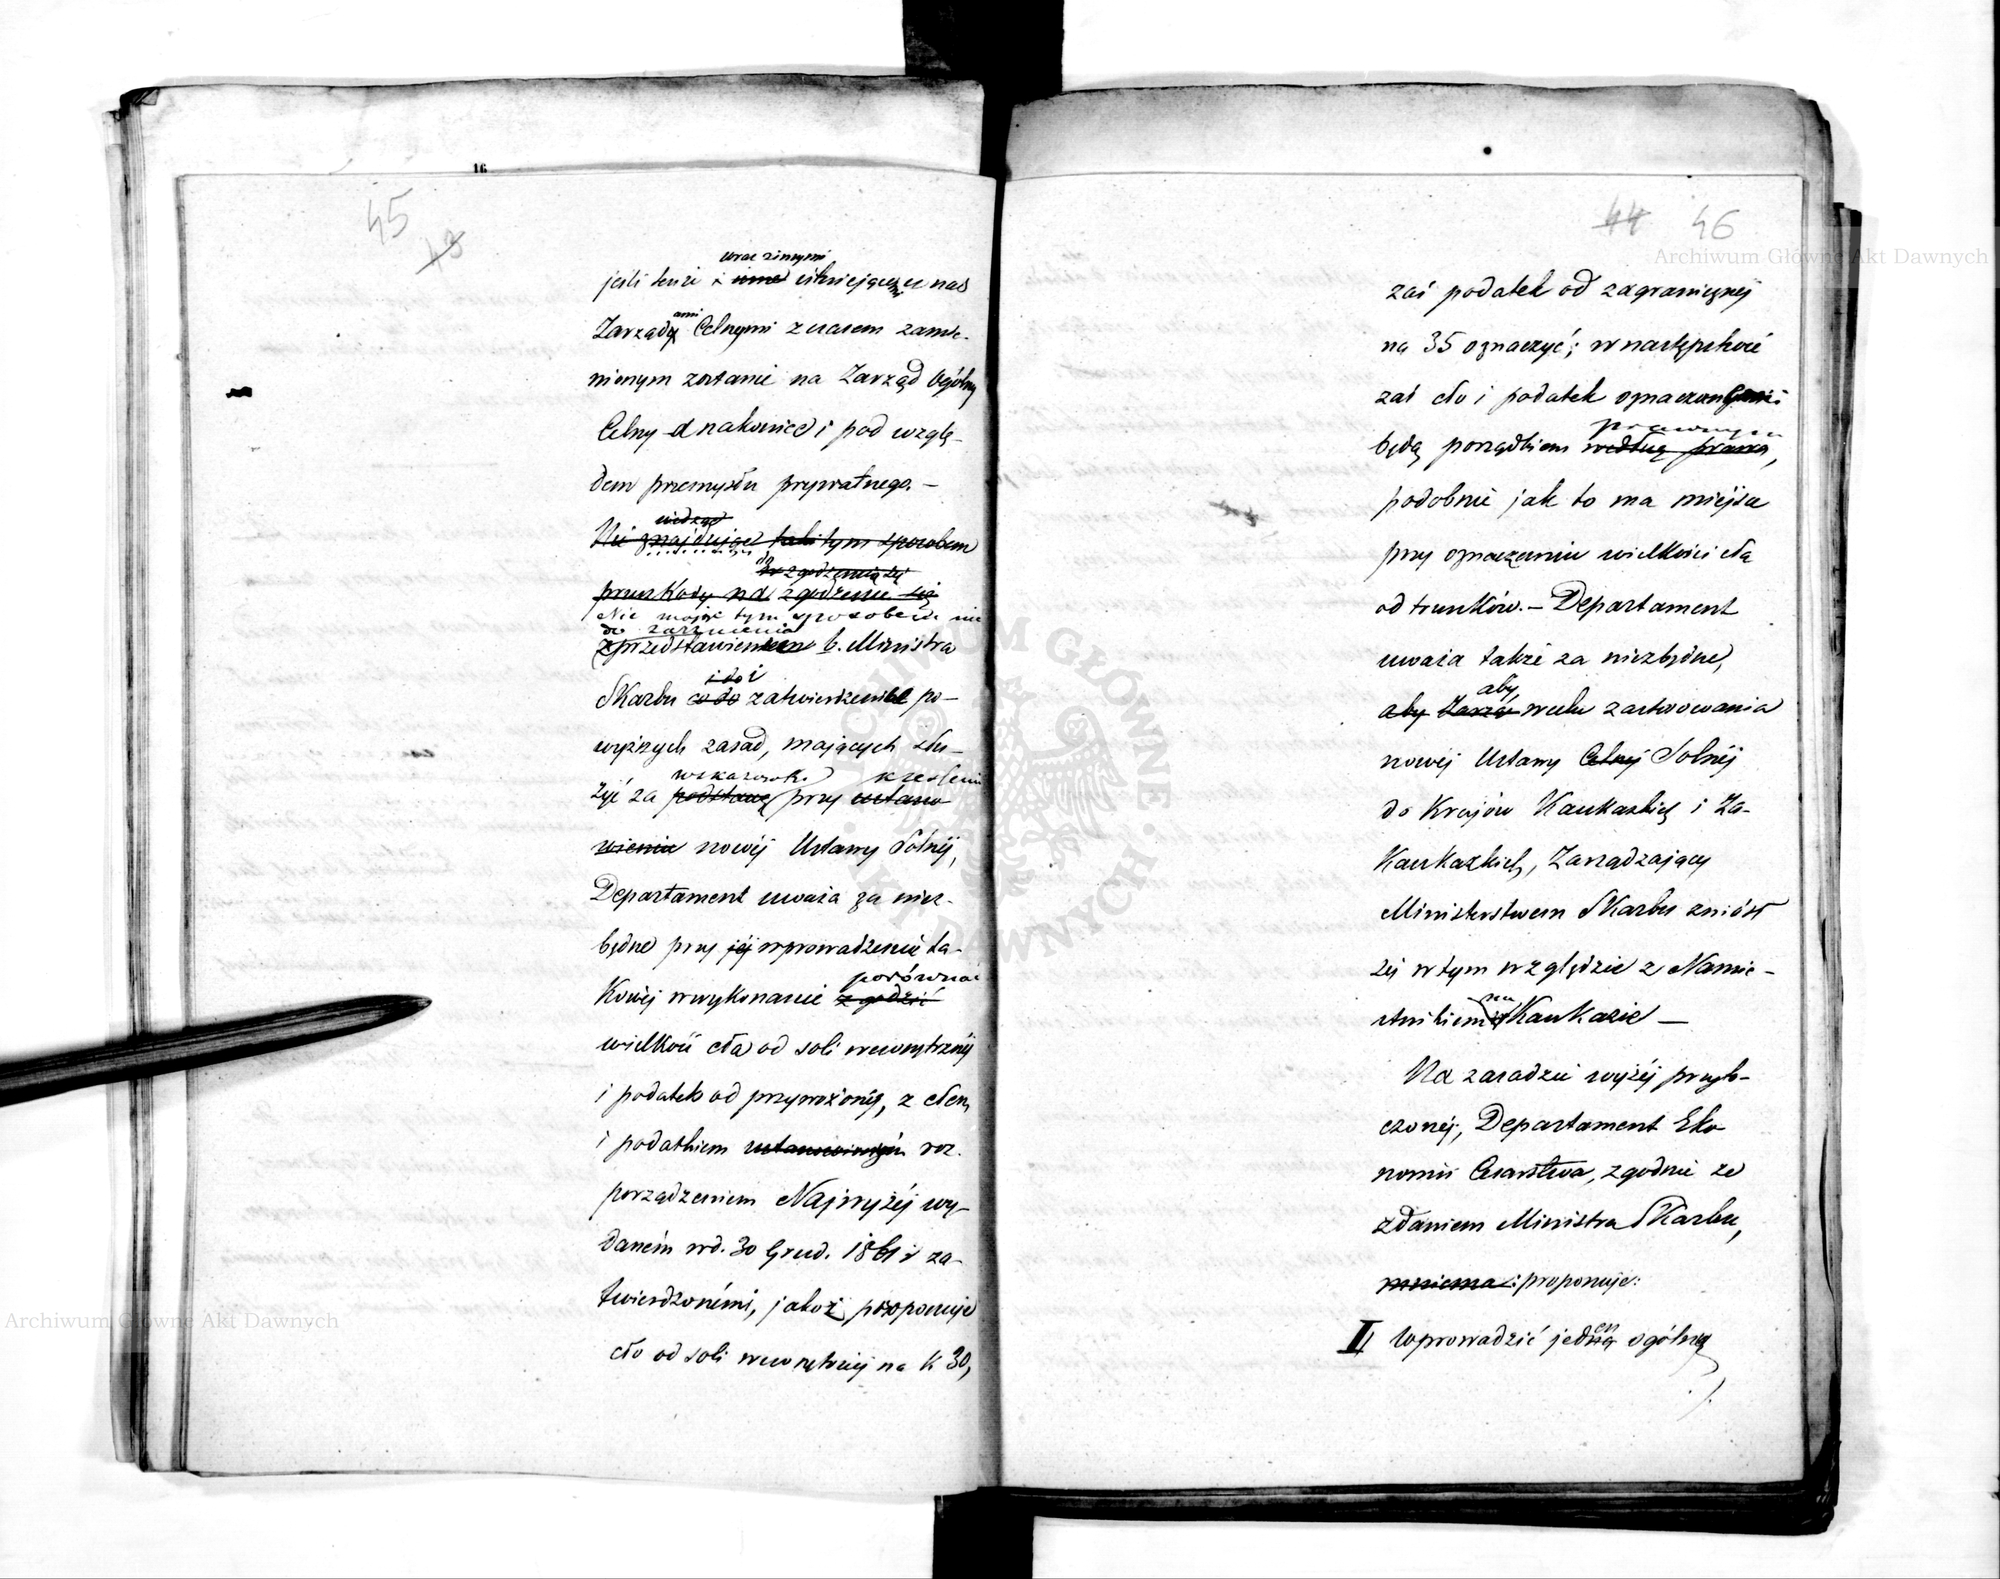 16
45
43
wraz z innymi
jeśli tenże i inne istniejącemi u nas
Zarządami Celnymi z czasem zamie-
nionym zostanie na Zarząd Ogólny
Celny a nakoniec i pod wzglę-
dem przemysłu prywatnego. –
widząc
Nie znajdując tym sposobem
przeszkody na zgodzenie się
Nie mając tym sposobem nic
do zarzucenia
przedstawieniem b. Ministra
i do
Skarbu co do zatwierdzenia po-
wyższych zasad, mających słu-
wskazówkę kreśleniu
żyć za podstawę przy ustano
wieniu nowéj Ustawy Solnéj,
Departament uważa za niez-
będne przy jéj wprowadzeniu ta-
porównać
Kowéj w wykonanie zgodzić
wielkość cła od soli wewnętrznéj
i podatek od przywożonéj, z cłem
i podatkiem ustanowionym roz-
porządzeniem Najwyżéj wy-
daném w d. 30 Grud. 1861 r za-
twierdzonémi, jakoż proponuje
cło od soli wewnętrznéj na K 30,
44 46
zaś podatek od zagranicznéj
na 35 oznaczyć; w następstwie
zaś cło i podatek oznaczone
prawnym
będą porządkiem według prawa,
podobnie jak to ma miejsce
przy oznaczeniu wielkości cła
od trunków. – Departament
uważa także za niezbędne,
aby
aby Zarzą w celu zastosowania
nowéj Ustawy Celnéj Solnéj
do Krajów Kaukazkich i Za-
Kaukazkich, Zarządzający
Ministerstwem Skarbu zniósł
się w tym względzie z Namie-
na
stnikiem Kaukazie —
Na zasadzie wyżéj przyto-
czonéj, Departament Eko
nomii Cesarstwa, zgodnie ze
zdaniem Ministra Skarbu,
mniema: proponuje:
II Wprowadzić jedną ogólną
Archiwum Główne Akt Dawnych
Archiwum Główne Akt Dawnych
ARCHIWUM GŁÓWNE AKT DAWNYCH